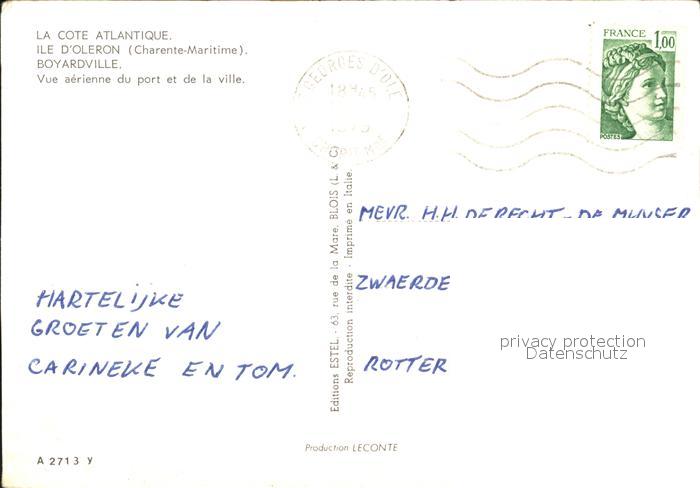 LA COTE ATLANTIQUE.
ILE D'OLERON (Charente-Maritime).
BOYARDVILLE.
Vue aérienne du port et de la ville.
GEORGES D'OLE
18H45
FRANCE
1,00
POSTES
Editions ESTEL - 63, rue de la Mare, BLOIS (L. & C)
Reproduction interdite - Imprimé en Italie.
MEVR. H.H.
ZWAERDE
ROTTER
privacy protection
Datenschutz
HARTELIJKE
GROETEN VAN
CARINEKE EN TOM.
Production LECONTE
A 2713 y